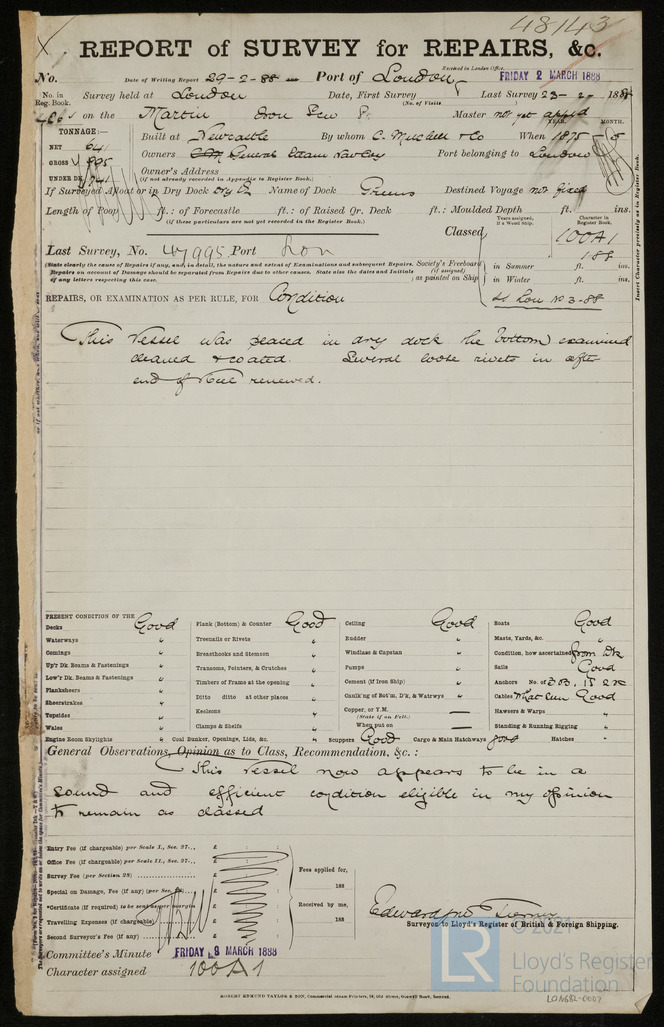 48143
REPORT of SURVEY for REPAIRS, &c.
Received in London Office,
No. Date of Writing Report 29-2-88 Port of London FRIDAY 2 MARCH 1888
No. in Reg. Book. Survey held at London Date, First Survey Last Survey 23-2-1888
(No. of Visits )
on the Martin Iron Screw Master not yet appd
TONNAGE:— YEAR. MONTH.
NET 641 Built at Newcastle By whom C. Mitchell & Co When 1875-
GROSS Owners General Steam Nav Coy Port belonging to London
UNDER DK 741 Owner's Address
(if not already recorded in Appendix to Register Book.)
If Surveyed Afloat or in Dry Dock Dry Dk Name of Dock Greens Destined Voyage not fixed
Length of Poop ft.: of Forecastle ft.: of Raised Qr. Deck ft.: Moulded Depth ft. ins.
(if these particulars are not yet recorded in the Register Book.)
Years assigned, if a Wood Ship. Character in Register Book.
Classed 100A1
188
Last Survey, No. 47995 Port Lon
(State clearly the cause of Repairs if any, and, in detail, the nature and extent of Examinations and subsequent Repairs. Repairs on account of Damage should be separated from Repairs due to other causes. State also the dates and Initials of any letters respecting this case.
Society's Freeboard (if assigned) as painted on Ship
in Summer ft. ins.
in Winter ft. ins.
REPAIRS, OR EXAMINATION AS PER RULE, FOR Condition
Insert Character precisely as in Register Book.
This Vessel was placed in dry dock the bottom examined
cleaned & coated. Several loose rivets in after
end of keel renewed.
PRESENT CONDITION OF THE
Decks Good Plank (Bottom) & Counter Good Ceiling Good Boats Good
Waterways " Treenails or Rivets " Rudder " Masts, Yards, &c. "
Comings " Breasthooks and Stemson " Windlass & Capstan " Condition, how ascertained from Dk
Up'r Dk. Beams & Fastenings " Transoms, Pointers, & Crutches " Pumps " Sails Good
Low'r Dk. Beams & Fastenings " Timbers of Frame at the opening " Cement (if Iron Ship) " Anchors No. of 3B. 1S 2K
Planksheers " Ditto ditto at other places " Caulk'ng of Bot'm, D'k, & Watrwys " Cables What seen Good
Sheerstrakes " Keelsons " Copper, or Y.M. — Hawsers & Warps "
Topsides " Clamps & Shelfs " (State if on Felt.) Standing & Running Rigging "
Wales " When put on —
Engine Room Skylights " Coal Bunker, Openings, Lids, &c. " Scuppers Good Cargo & Main Hatchways good Hatches "
General Observations, Opinion as to Class, Recommendation, &c.:
This Vessel now appears to be in a
sound and efficient condition eligible in my opinion
to remain as classed
Entry Fee (if chargeable) per Scale I., Sec. 27... £ : :
Office Fee (if chargeable) per Scale II., Sec. 27... £ : :
Survey Fee (per Section 28) £ : :
Special on Damage, Fee (if any) (per Sec. 28) £ : :
*Certificate (if required) to be sent as per margin £ : :
Travelling Expenses (if chargeable) £ : :
Second Surveyor's Fee (if any) £ : :
Fees applied for,
188
Received by me,
188
Surveyor to Lloyd's Register of British & Foreign Shipping.
Committee's Minute FRIDAY 9 MARCH 1888
Character assigned 100A1
ROBERT EDMUND TAYLOR & SON, Commercial Steam Printers, 19, Old Street, Goswell Road, London.
LR
© 2021
Lloyd's Register
Foundation